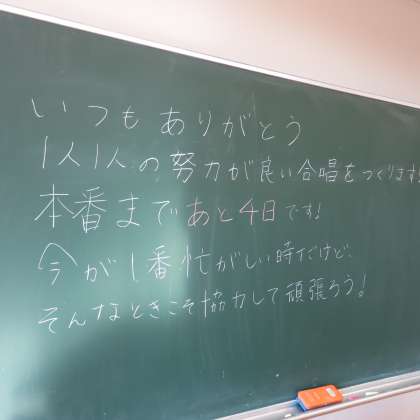 いつもありがとう
1人1人の努力が良い合唱をつくります!
本番まであと4日です!
今が1番忙がしい時だけど、
そんなときこそ協力して頑張ろう!